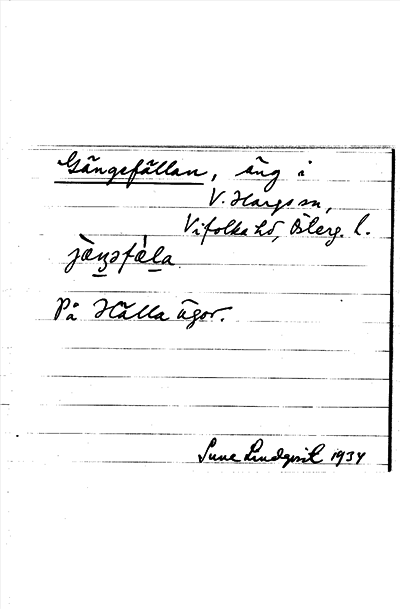 Gängefällan, äng i
V. Hargs sn,
Vifolka hd, Österg. l.
jæ̀ŋəfæ̀la
På Hälla ägor.
Sune Lindqvist 1934